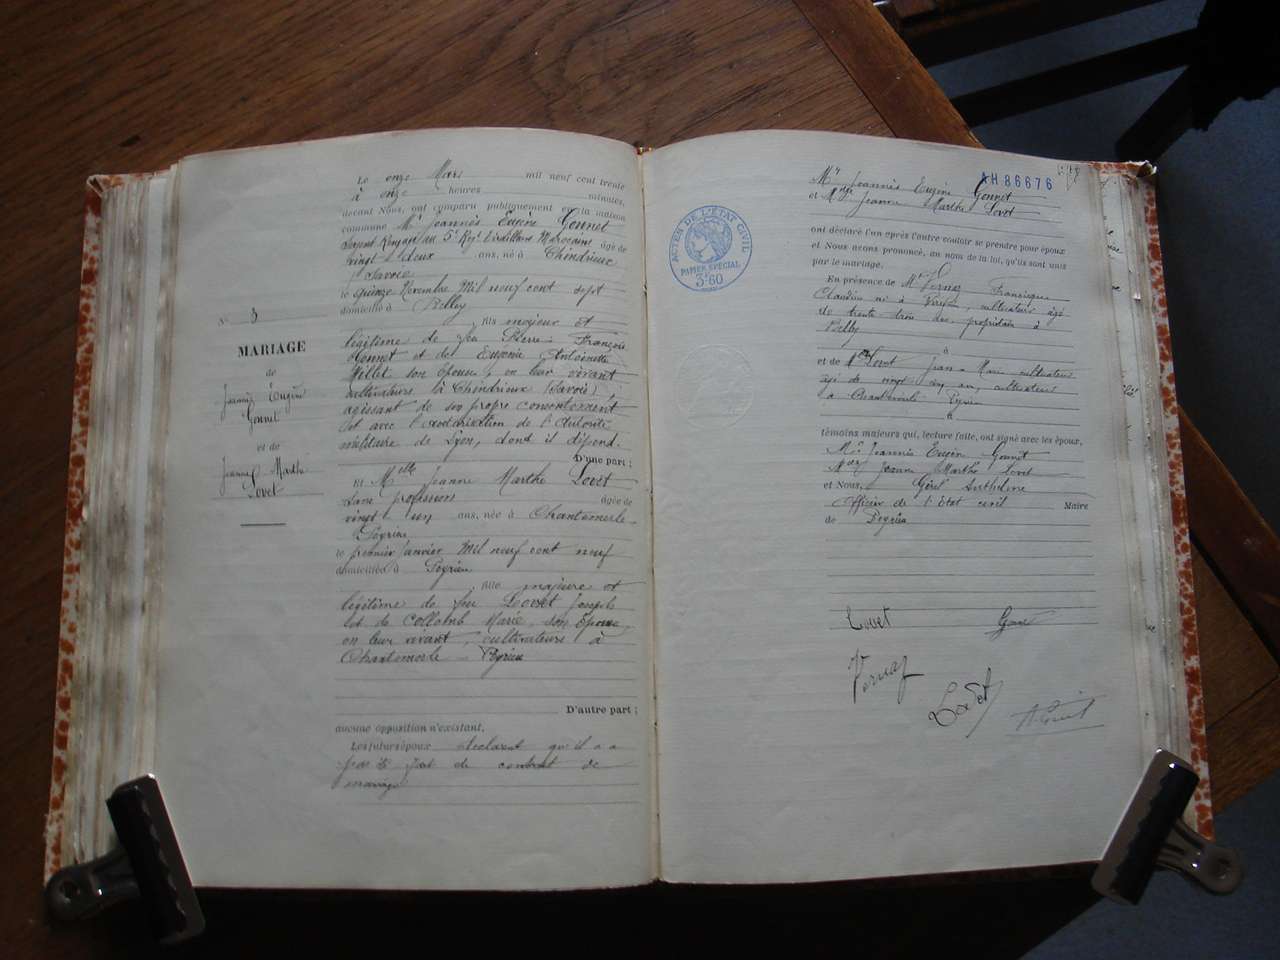 Le onze Mars mil neuf cent trente
à onze heures minutes,
devant Nous, ont comparu publiquement en la maison
commune Mr Joannès Eugène Gonnet
Sergent Rengagé au 5e Régt Tirailleurs Marocains âgé de
vingt deux ans, né à Chindrieux
Savoie
le quinze Novembre Mil neuf cent sept
domicilié à Belley
fils majeur et
légitime de feu Pierre François
Gonnet et de Eugénie Antoinette
Millet son épouse, en leur vivant
cultivateurs à Chindrieux (Savoie) ;
agissant de son propre consentement
et avec l'autorisation de l'Autorité
militaire de Lyon, dont il dépend.
D'une part ;
Et Melle Jeanne Marthe Lovet
sans profession âgée de
vingt un ans, née à Chantemerle
Peyrieu
le premier Janvier Mil neuf cent neuf
domiciliée à Peyrieu
fille majeure et
légitime de feu Lovet Joseph
et de Collomb Marie, son épouse
en leur vivant, cultivateurs à
Chantemerle - Peyrieu
D'autre part ;
aucune opposition n'existant.
Les futurs époux déclarent qu'il n'a
pas été fait de contrat de
mariage
No 3
MARIAGE
de
Joannès Eugène
Gonnet
et de
Jeanne Marthe
Lovet
AH 86676
Mr Joannès Eugène Gonnet
et Melle Jeanne Marthe Lovet
ont déclaré l'un après l'autre vouloir se prendre pour époux
et Nous avons prononcé, au nom de la loi, qu'ils sont unis
par le mariage.
En présence de Mr Vernaz Francisque
Claudius né à cultivateur âgé
de trente trois ans, propriétaire à
Belley
et de Mr Lovet Jean-Marie cultivateur
âgé de vingt cinq ans, cultivateur
à Chantemerle Peyrieu
témoins majeurs qui, lecture faite, ont signé avec les époux,
Mr Joannès Eugène Gonnet
Jeanne Marthe Lovet
et Nous, Anthelme
Officier de l'État civil Maire
de Peyrieu
ACTES DE L'ÉTAT CIVIL
PAPIER SPÉCIAL
3f60
Lovet
Vernaz
Lovet